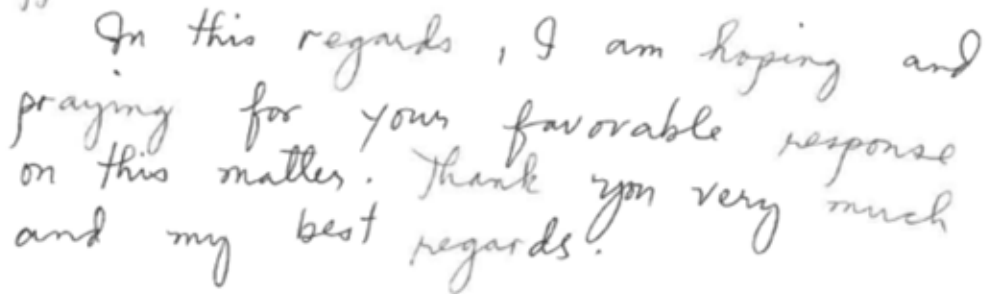 In this regards, I am hoping and
praying for your favorable response
on this matter. Thank you very much
and my best regards.